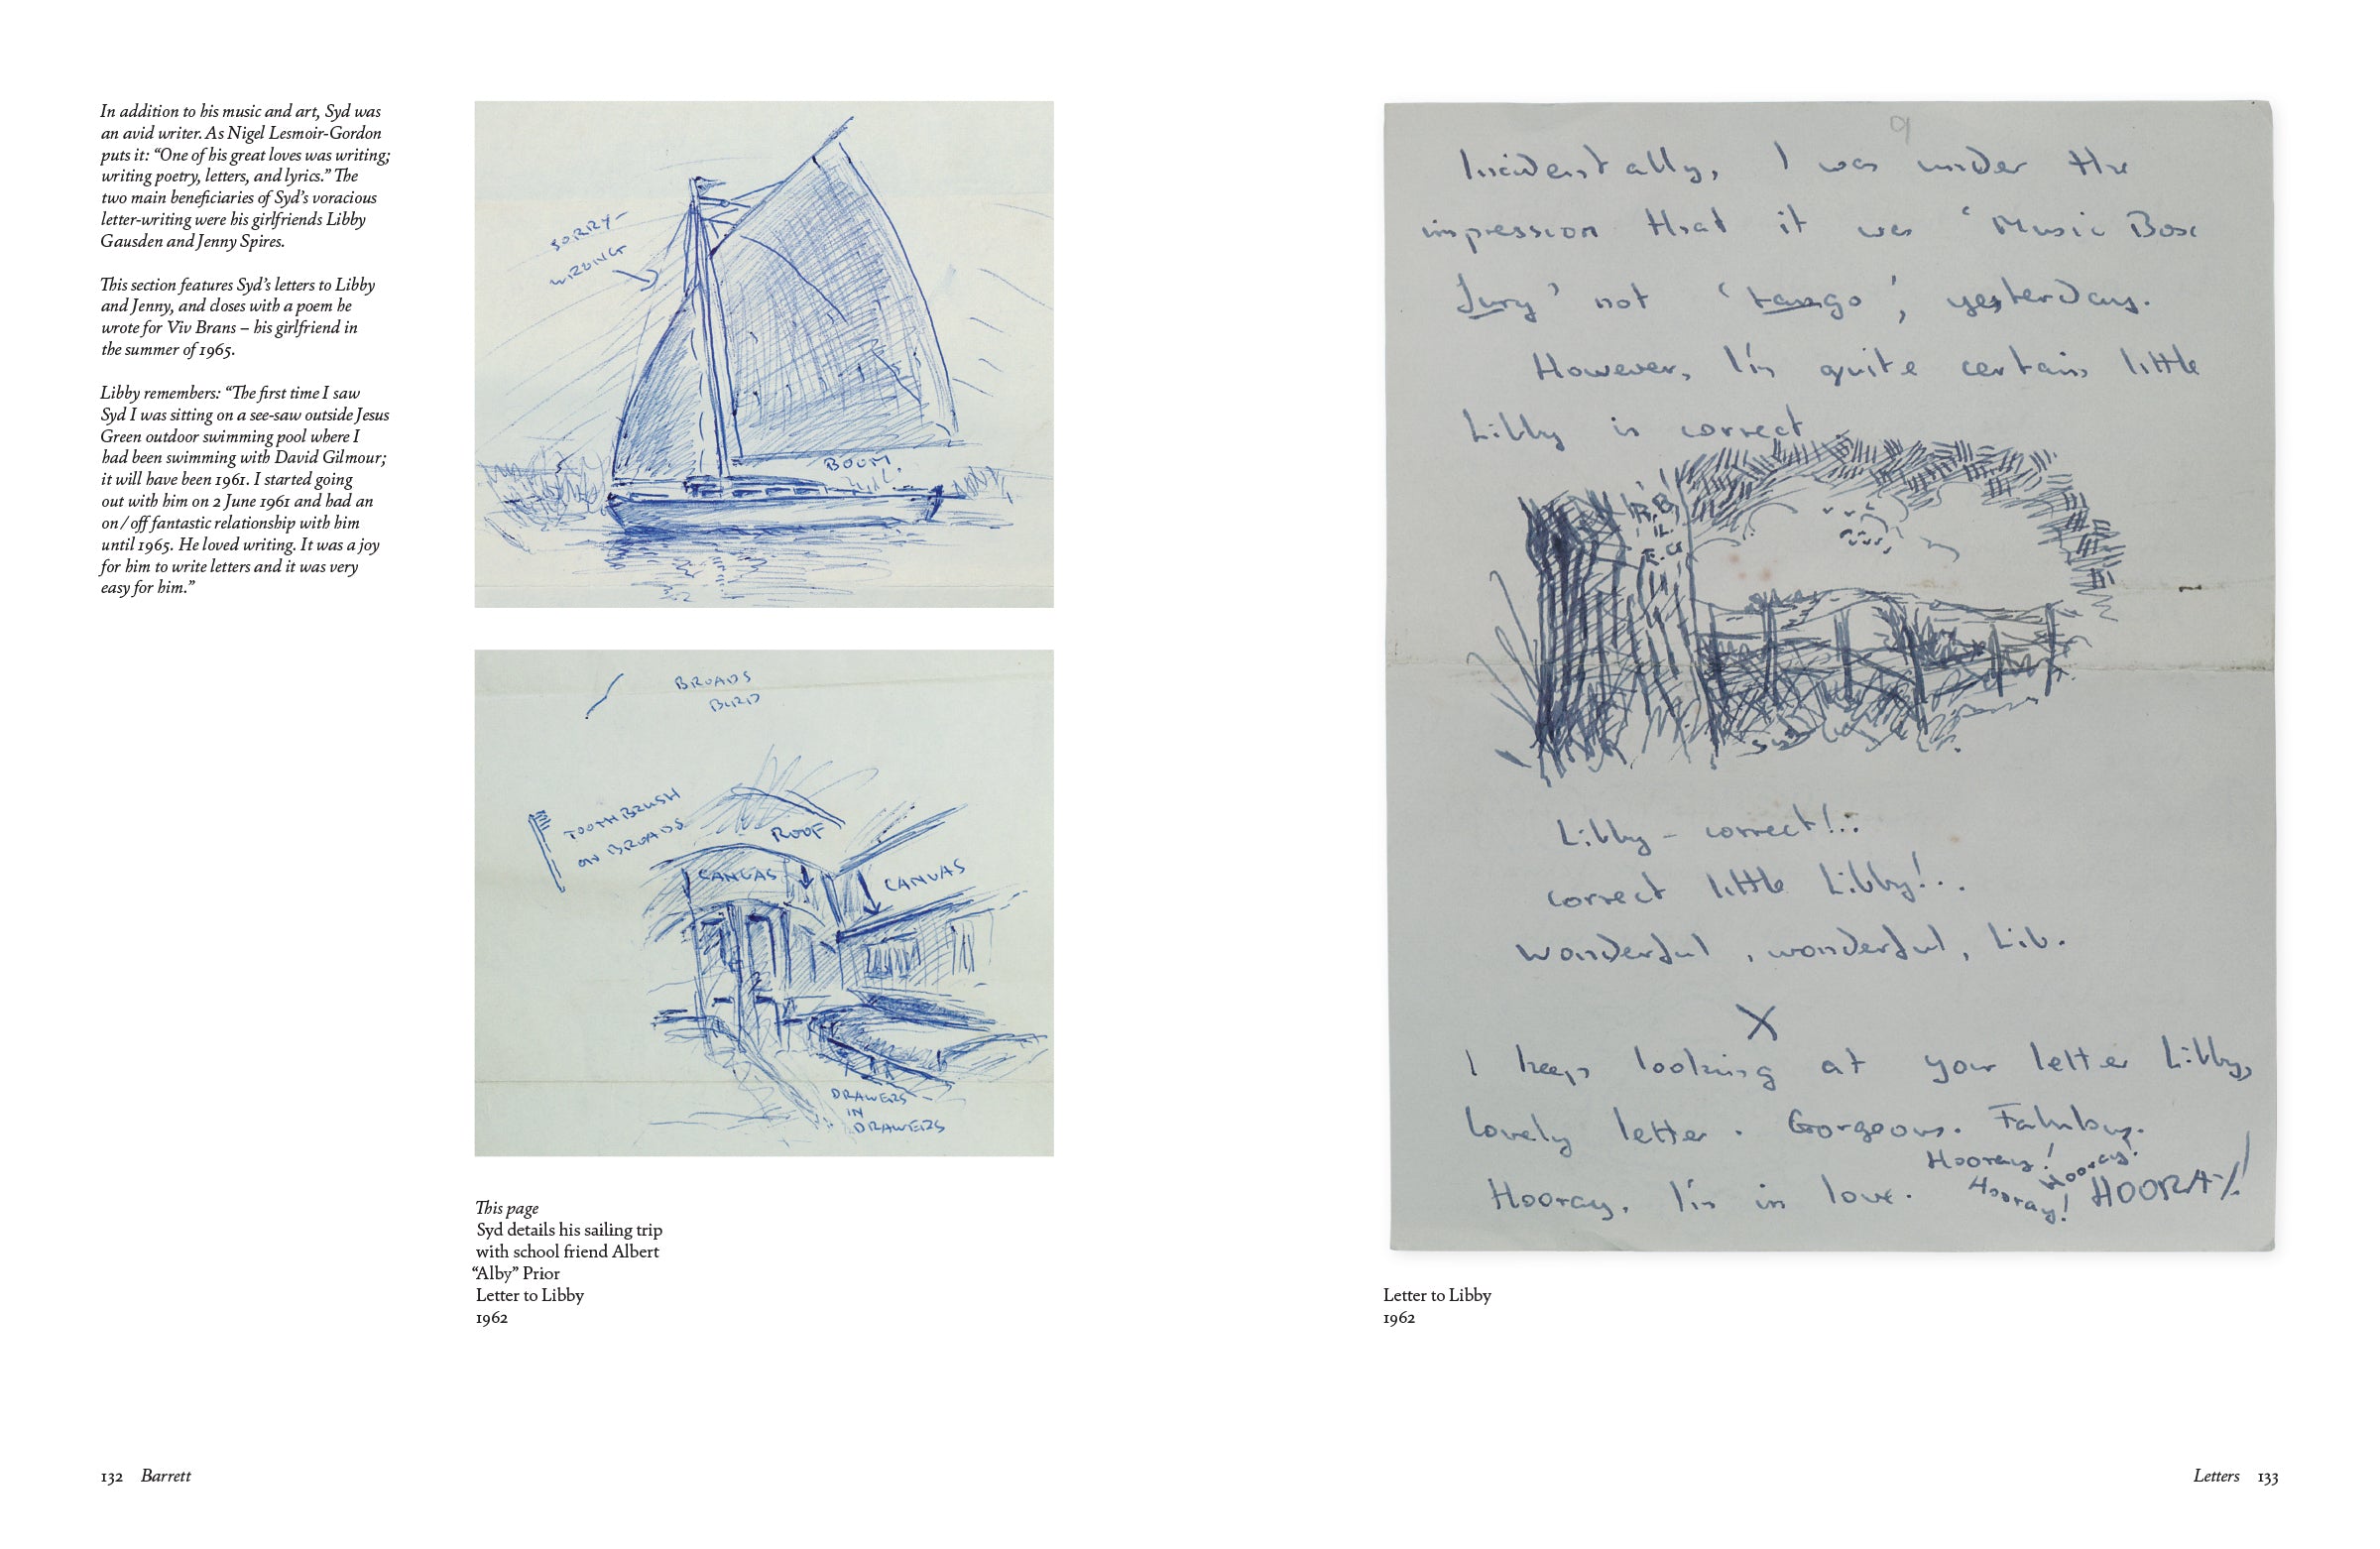 In addition to his music and art, Syd was
an avid writer. As Nigel Lesmoir-Gordon
puts it: “One of his great loves was writing;
writing poetry, letters, and lyrics.” The
two main beneficiaries of Syd’s voracious
letter-writing were his girlfriends Libby
Gausden and Jenny Spires.
This section features Syd’s letters to Libby
and Jenny, and closes with a poem he
wrote for Viv Brans – his girlfriend in
the summer of 1965.
Libby remembers: “The first time I saw
Syd I was sitting on a see-saw outside Jesus
Green outdoor swimming pool where I
had been swimming with David Gilmour;
it will have been 1961. I started going
out with him on 2 June 1961 and had an
on / off fantastic relationship with him
until 1965. He loved writing. It was a joy
for him to write letters and it was very
easy for him.”
SORRY –
WRONG
BOOM.
BROADS
BIRD
TOOTHBRUSH
ON BROADS
ROOF
CANVAS
CANVAS
DRAWERS –
IN
DRAWERS
This page
Syd details his sailing trip
with school friend Albert
“Alby” Prior
Letter to Libby
1962
132 Barrett
9
Incidentally, I was under the
impression that it was ‘Music Box
Jury’ not ‘tango’, yesterday.
However, I'm quite certain little
Libby is correct
R.B.
L.
E.G
Libby – correct!..
correct little Libby!..
Wonderful, wonderful, Lib.
X
I keep looking at your letter Libby,
Lovely letter. Gorgeous. Fahbus.
Hooray, I'm in love. Hooray! Hooray! Hooray! HOORAY!
Letter to Libby
1962
Letters 133